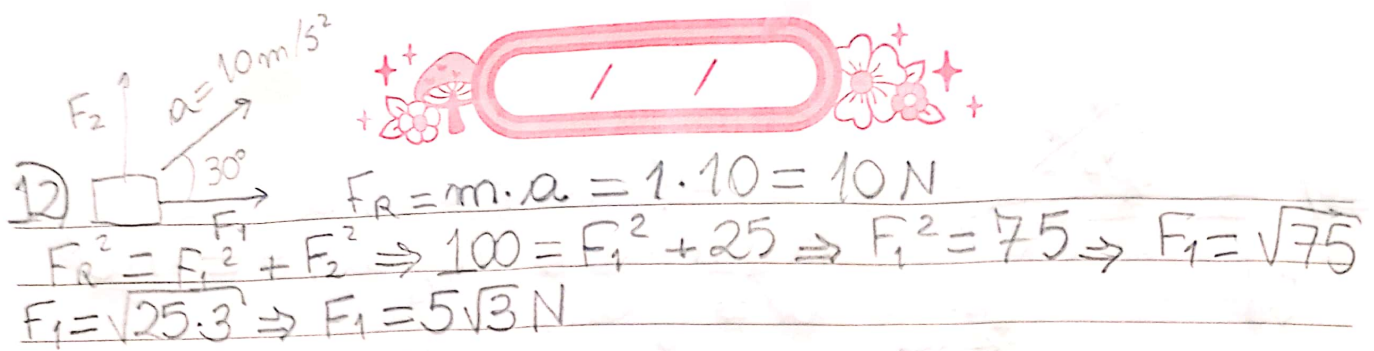 F₂ a = 10 m/s²
30°
12) F_R = m · a = 1 · 10 = 10 N
F₁
F_R² = F₁² + F₂² ⇒ 100 = F₁² + 25 ⇒ F₁² = 75 ⇒ F₁ = √75
F₁ = √25·3 ⇒ F₁ = 5√3 N
/ /